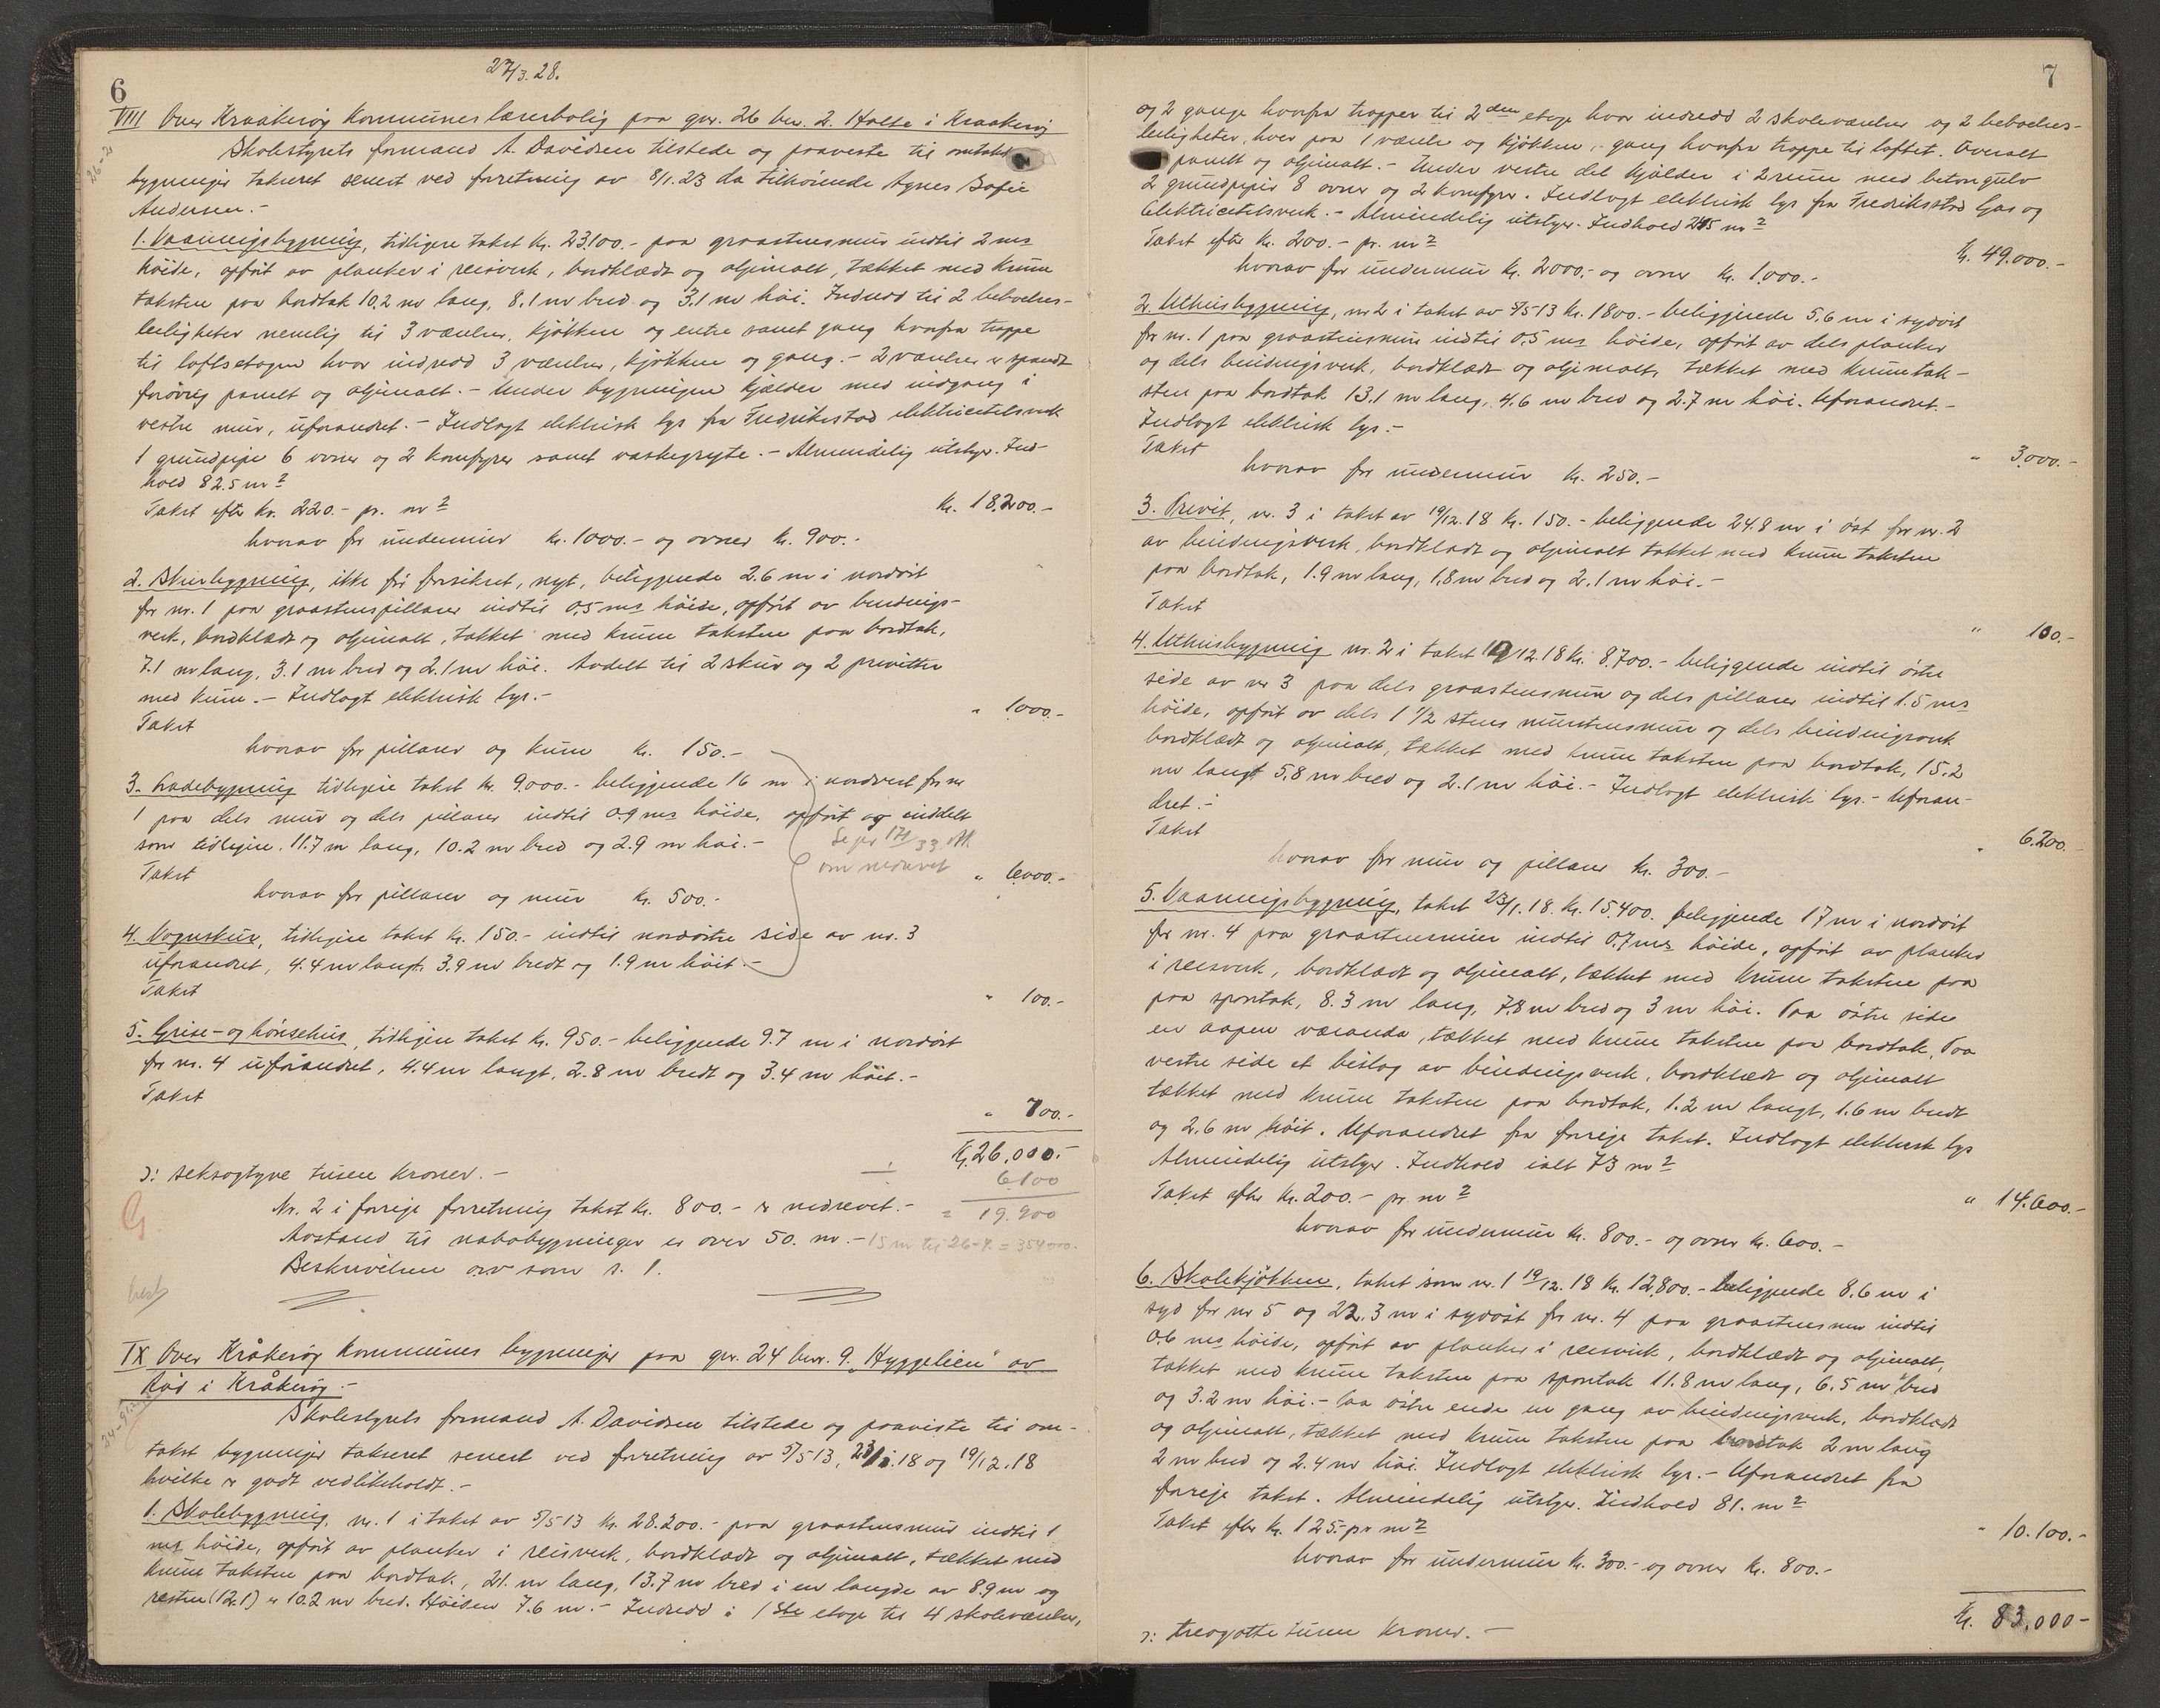 6
27/3.28.
VIII Over Kraakerøy kommunes lærerbolig paa gnr. 26 bnr. 2. Holte i Kraakerøy
26-2
Skolestyrets formand A. Davidsen tilstede og paaveste til omtakst
bygninger takseret senest ved forretning av 8/1.23 da tilhörende Agnes Sofie
Andersen.-
1. Vaaningsbygning, tidligere takst kr. 23100.- paa graastensmur indtil 2 ms
höide, opfört av planker i reisverk, bordklædt og oljemalt, tækket med krum
taksten paa bordtak 10.2 m lang, 8.1 m bred og 3.1 m höi. Indredd til 2 beboelses-
leiligheter nemlig til 3 værelser, kjökken og entre samt gang hvorfra trappe
til loftsetagen hvor indredd 3 værelser, kjökken og gang.- 2 værelser er spændt
forövrig panelt og oljemalt.- Under bygningen kjælder med indgang i
vestre mur, uforandret.- Indlagt elektrisk lys fra Fredrikstad elektricitetsverk
1 grundpipe 6 ovner og 2 komfyrer samt vaskegryte.- Almindelig utstyr. Ind-
hold 82.5 m2
Takst efter kr. 220.- pr. m2 kr. 18.200.-
hvorav for undermur kr. 1000.- og ovner kr. 900.-
2. Skurbygning, ikke för forsikret, nyt, beliggende 2.6 m i nordöst
for nr. 1 paa graastenspillarer indtil 0,5 ms höide, opfört av bindings-
verk, bordklædt og oljemalt, tækket med krum taksten paa bordtak,
7.1 m lang, 3.1 m bred og 2.1 m höi. Avdelt til 2 skur og 2 privetter
med kum.- Indlagt elektrisk lys.-
Takst " 1000.-
hvorav for pillarer og kum kr. 150.-
3. Ladebygning tidligere takst kr. 9.000.- beliggende 16 m i nordvest for nr
1 paa dels mur og dels pilarer indtil 0.9 ms höide, opfört og inddelt
som tidligere. 11.7 m lang, 10.2 m bred og 2.9 m höi.-
om nedrevet
Takst " 6.000.-
hvorav for pillarer og mur kr. 500.-
4. Vognskur, tidligere takst kr. 150.- indtil nordöstre side av nr. 3
uforandret, 4.4 m langt, 3.9 m bredt og 1.9 m höit.-
Takst " 100.-
5. Grise- og hönsehus, tidligere takst kr. 950.- beliggende 9.7 m i nordöst
for nr. 4 uforandret, 4.4 m langt, 2.8 m bredt og 3.4 m höit.-
Takst " 700.-
Kr. 26.000.-
ɔ: seksogtyve tusen kroner.- ÷ 6100
Nr. 2 i forrige forretning takst kr. 800.- er nedrevet.- = 19.900
Avstand til nabobygninger er over 50. m.- 15 m til 26-4. = 354000.-
Beskrivelsen o.v. som s. 1.
IX Over Kråkeröy kommunes bygninger paa gnr. 24 bnr. 9. "Hyggelien" av
Röd i Kråkeröy.-
Skolestyrets formand A. Davidsen tilstede og paaviste til om-
takst bygninger takseret senest ved forretning av 5/5 13, 23/1.18 og 19/12.18
hvilke er godt vedlikeholdt.-
1. Skolebygning, nr. 1 i takst av 5/5 13 kr. 28.200.- paa graastensmur indtil 1
ms höide, opfört av planker i reisverk, bordklædt og oljemalt, tækket med
krum taksten paa bordtak, 21. m lang, 13.7 m bred i en længde av 8.9 m og
resten (12.1) er 10.2 m bred. Höiden 7.6 m.- Indredd i 1ste etage til 4 skoleværelser,
7
og 2 gange hvorfra trapper til 2den etage hvor indredd 2 skoleværelser og 2 beboelses-
leiligheter, hver paa 1 værelse og kjökken, gang hvorfra trappe til loftet. Overalt
panelt og oljemalt.- Under vestre del kjælder i 2 rum med betongulv
2 grundpiper 8 ovner og 2 komfyrer. Indlagt elektrisk lys fra Fredriksstad Gas og
Elektricitetsverk.- Almindelig utstyr. Indhold 245 m2
Takst efter kr. 200.- pr. m2 kr. 49.000.-
hvorav for undermur kr. 2000.- og ovner kr. 1.000.-
2. Uthusbygning, nr 2 i takst av 5/5 13 kr. 1800.- beliggende 5.6 m i sydöst
for nr. 1 paa graastensmur indtil 0.5 ms höide, opfört av dels planker
og dels bindingsverk, bordklædt og oljemalt, tækket med krumtak-
sten paa bordtak 13.1 m lang, 4.6 m bred og 2.7 m höi. Uforandret.-
Indlagt elektrisk lys.-
Takst " 3.000.-
hvorav for undermur kr. 250.-
3. Privet, nr. 3 i takst av 19/12.18 kr. 150.- beliggende 24.8 m i öst for nr. 2
av bindingsverk, bordklædt og oljemalt tækket med krum taksten
paa bordtak, 1.9 m lang, 1.8 m bred og 2.1 m höi.-
Takst " 100.-
4. Uthusbygning nr. 2 i takst 19/12.18 kr. 8.700.- beliggende indtil östre
side av nr 3 paa dels graastensmur og dels pillarer indtil 1.5 ms
höide, opfört av dels 1 1/2 stens murstensmur og dels bindingsverk
bordklædt og oljemalt, tækket med krum taksten paa bordtak, 15.2
m langt 5.8 m bred og 2.1 m höi.- Indlagt elektrisk lys.- Uforan-
dret.-
Takst " 6.200.-
hvorav for mur og pillarer kr. 300.-
5. Vaaningsbygning, takst 23/1.18. kr. 15.400. beliggende 17 m i nordöst
for nr. 4 paa graastensmur indtil 0.7 ms höide, opfört av planker
i reisverk, bordklædt og oljemalt, tækket med krum taksten paa
paa spontak, 8.3 m lang, 7.8 m bred og 3 m höi. Paa östre side
en aapen veranda, tækket med krum taksten paa bordtak, Paa
vestre side et bislag av bindingsverk, bordklædt og oljemalt
tækket med krum taksten paa bordtak, 1.2 m langt, 1.6 m bredt
og 2.6 m höit. Uforandret fra forrige takst. Indlagt elektrisk lys
Almindelig utstyr. Indhold ialt 73 m2
Takst efter kr. 200.- pr m2 " 14.600.-
hvorav for undermur kr. 800.- og ovner kr. 600.-
6. Skolekjökken, takst som nr. 1 19/12.18 kr. 12.800.- beliggende 8.6 m i
syd for nr 5 og 22.3 m i sydöst for nr. 4 paa graastensmur indtil
0.6 ms höide, opfört av planker i reisverk, bordklædt og oljemalt,
tækket med krum taksten paa spontak 11.8 m lang, 6.5 m bred
og 3.2 m höi.- Paa östre ende en gang av bindingsverk, bordklædt
og oljemalt, tækket med krum taksten paa bordtak 2 m lang
2 m bred og 2.4 m höi. Indlagt elektrisk lys.- Uforandret fra
forrige takst. Almindelig utstyr. Indhold 81. m2
Takst efter kr. 125.- pr m2 " 10.100.-
hvorav for undermur kr. 300.- og ovner kr. 800.-
Kr. 83.000-
ɔ: treogotti tusen kroner.-